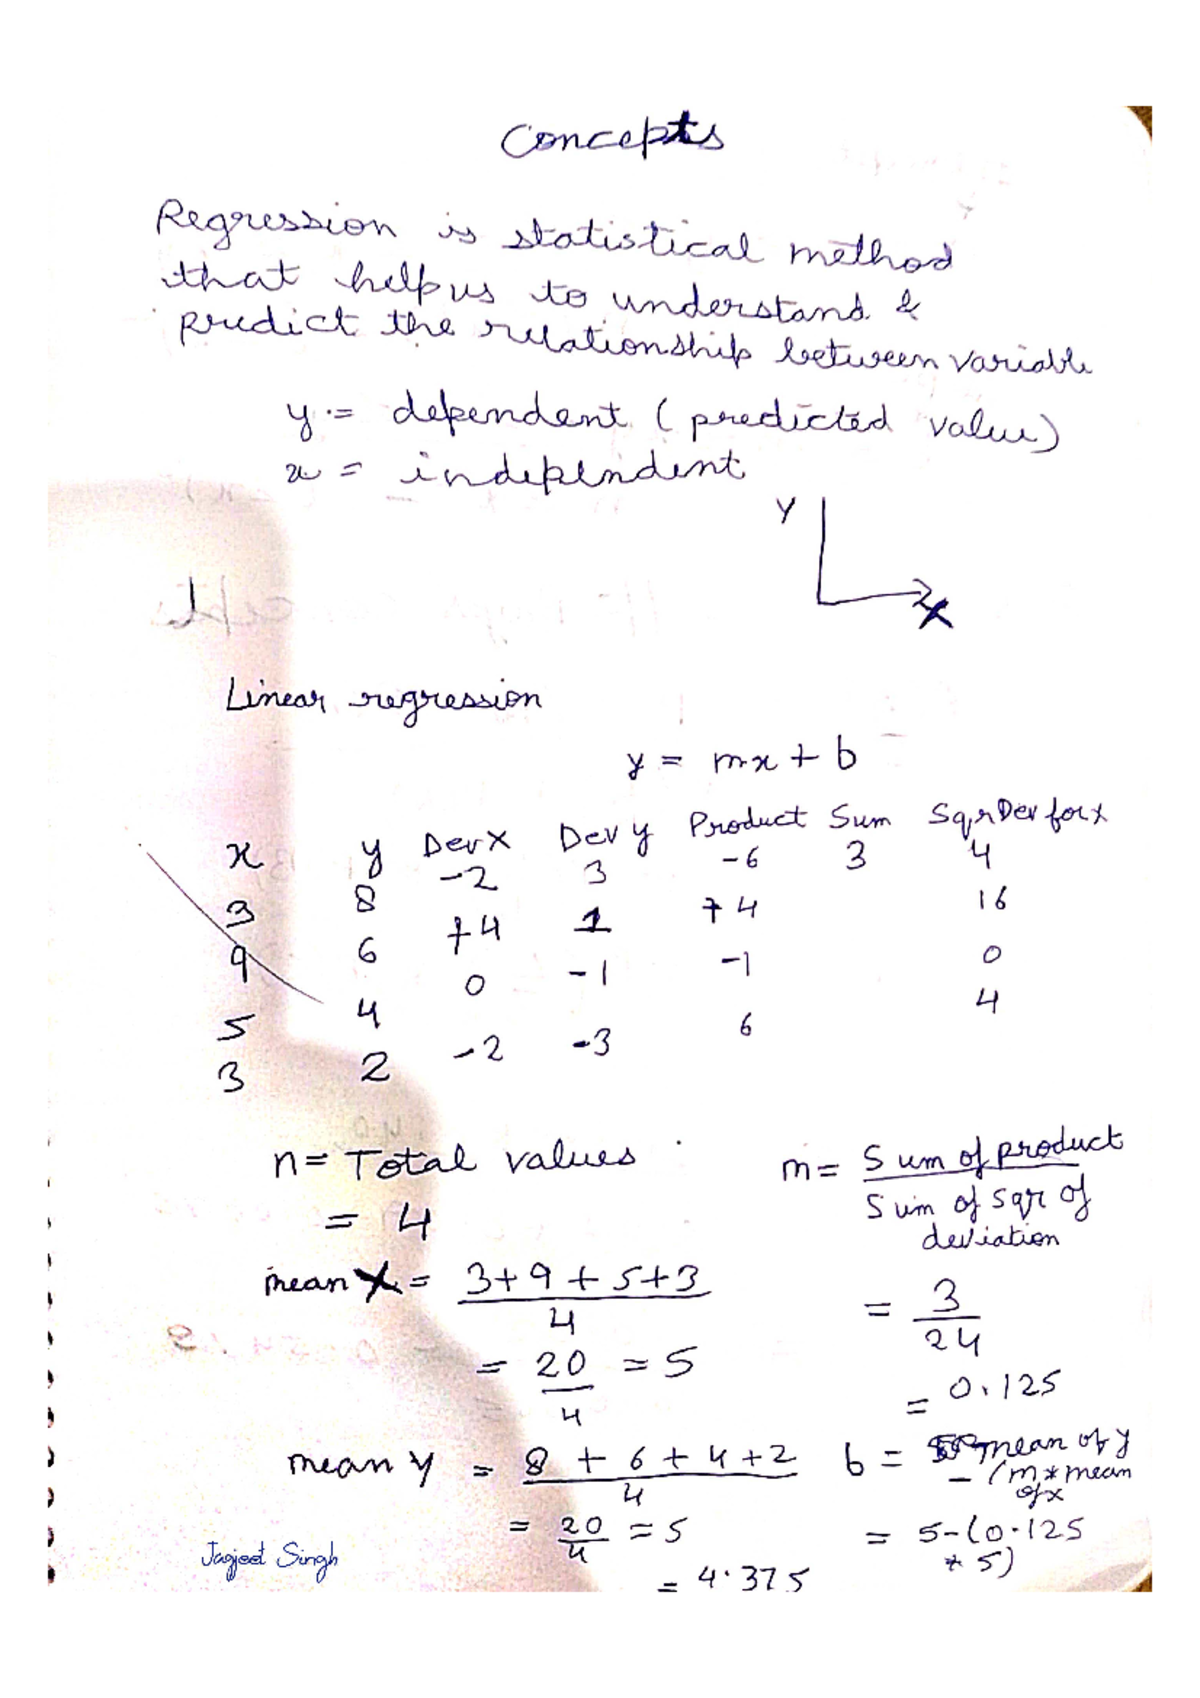 Concepts
Regression is statistical method
that help us to understand &
predict the relationship between variable
y = dependent (predicted value)
x = independent
Y
X
Linear regression
y = mx + b
x y Dev X Dev y Product Sum Sqr Dev for x
3 8 -2 3 -6 3 4
9 6 +4 1 +4 16
5 4 0 -1 -1 0
3 2 -2 -3 6 4
n = Total values
= 4
mean X = 3+9+5+3
4
= 20 = 5
4
mean y = 8 + 6 + 4 + 2
4
= 20 = 5
4
m = Sum of product
Sum of sqr of
deviation
= 3
24
= 0.125
b = mean of y
- (m * mean
of x
= 5-(0.125
* 5)
= 4.375
Jagjeet Singh